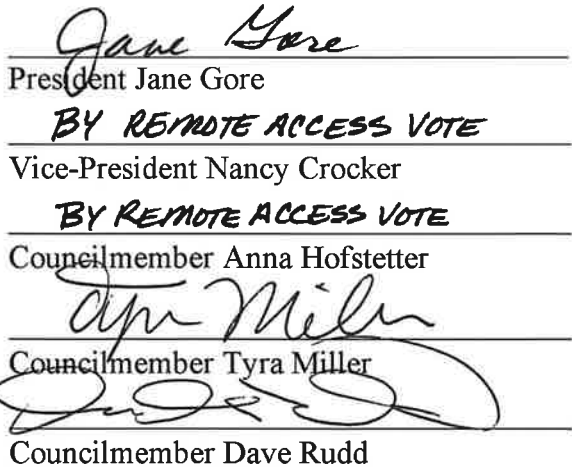 Jane Gore
President Jane Gore
BY REMOTE ACCESS VOTE
Vice-President Nancy Crocker
BY REMOTE ACCESS VOTE
Councilmember Anna Hofstetter
Tyra Miller
Councilmember Tyra Miller
Councilmember Dave Rudd